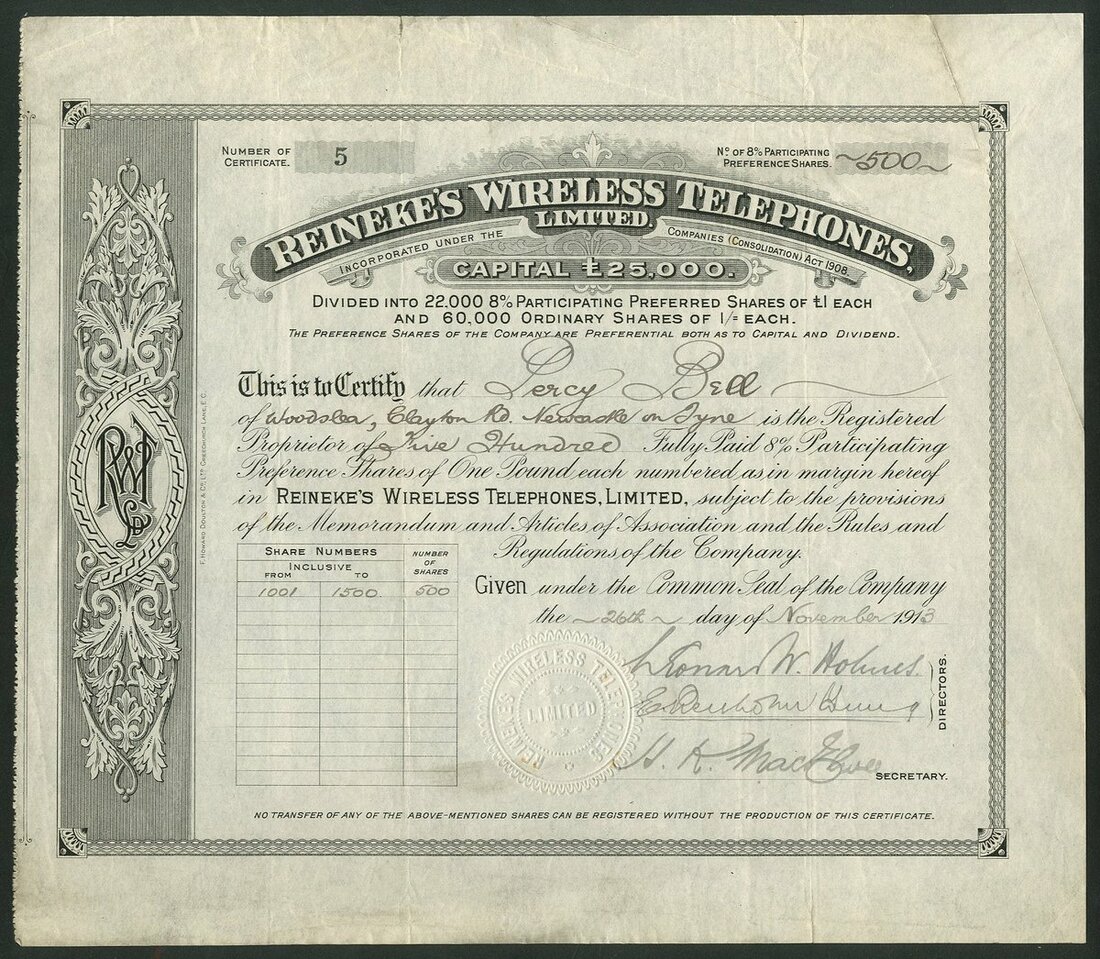 NUMBER OF CERTIFICATE. 5
No OF 8% PARTICIPATING PREFERENCE SHARES. ~500~
REINEKE'S WIRELESS TELEPHONES,
LIMITED.
INCORPORATED UNDER THE COMPANIES (CONSOLIDATION) ACT 1908.
CAPITAL £25,000.
DIVIDED INTO 22,000 8% PARTICIPATING PREFERRED SHARES OF £1 EACH
AND 60,000 ORDINARY SHARES OF 1/= EACH.
THE PREFERENCE SHARES OF THE COMPANY ARE PREFERENTIAL BOTH AS TO CAPITAL AND DIVIDEND.
This is to Certify that Percy Bell
of Woodslea, Clayton Rd. Newcastle on Tyne is the Registered
Proprietor of Five Hundred Fully Paid 8% Participating
Preference Shares of One Pound each numbered as in margin hereof
in REINEKE'S WIRELESS TELEPHONES, LIMITED, subject to the provisions
of the Memorandum and Articles of Association and the Rules and
Regulations of the Company.
SHARE NUMBERS
INCLUSIVE
FROM TO
NUMBER OF SHARES
1001 1500. 500
Given under the Common Seal of the Company
the ~26th~ day of November 1913
REINEKE'S WIRELESS TELEPHONES
LIMITED
Leonard W. Holmes.
DIRECTORS.
SECRETARY.
NO TRANSFER OF ANY OF THE ABOVE-MENTIONED SHARES CAN BE REGISTERED WITHOUT THE PRODUCTION OF THIS CERTIFICATE.
RWT
Ld
F. HOWARD DOULTON & Co. LTD. CREECHURCH LANE, E.C.